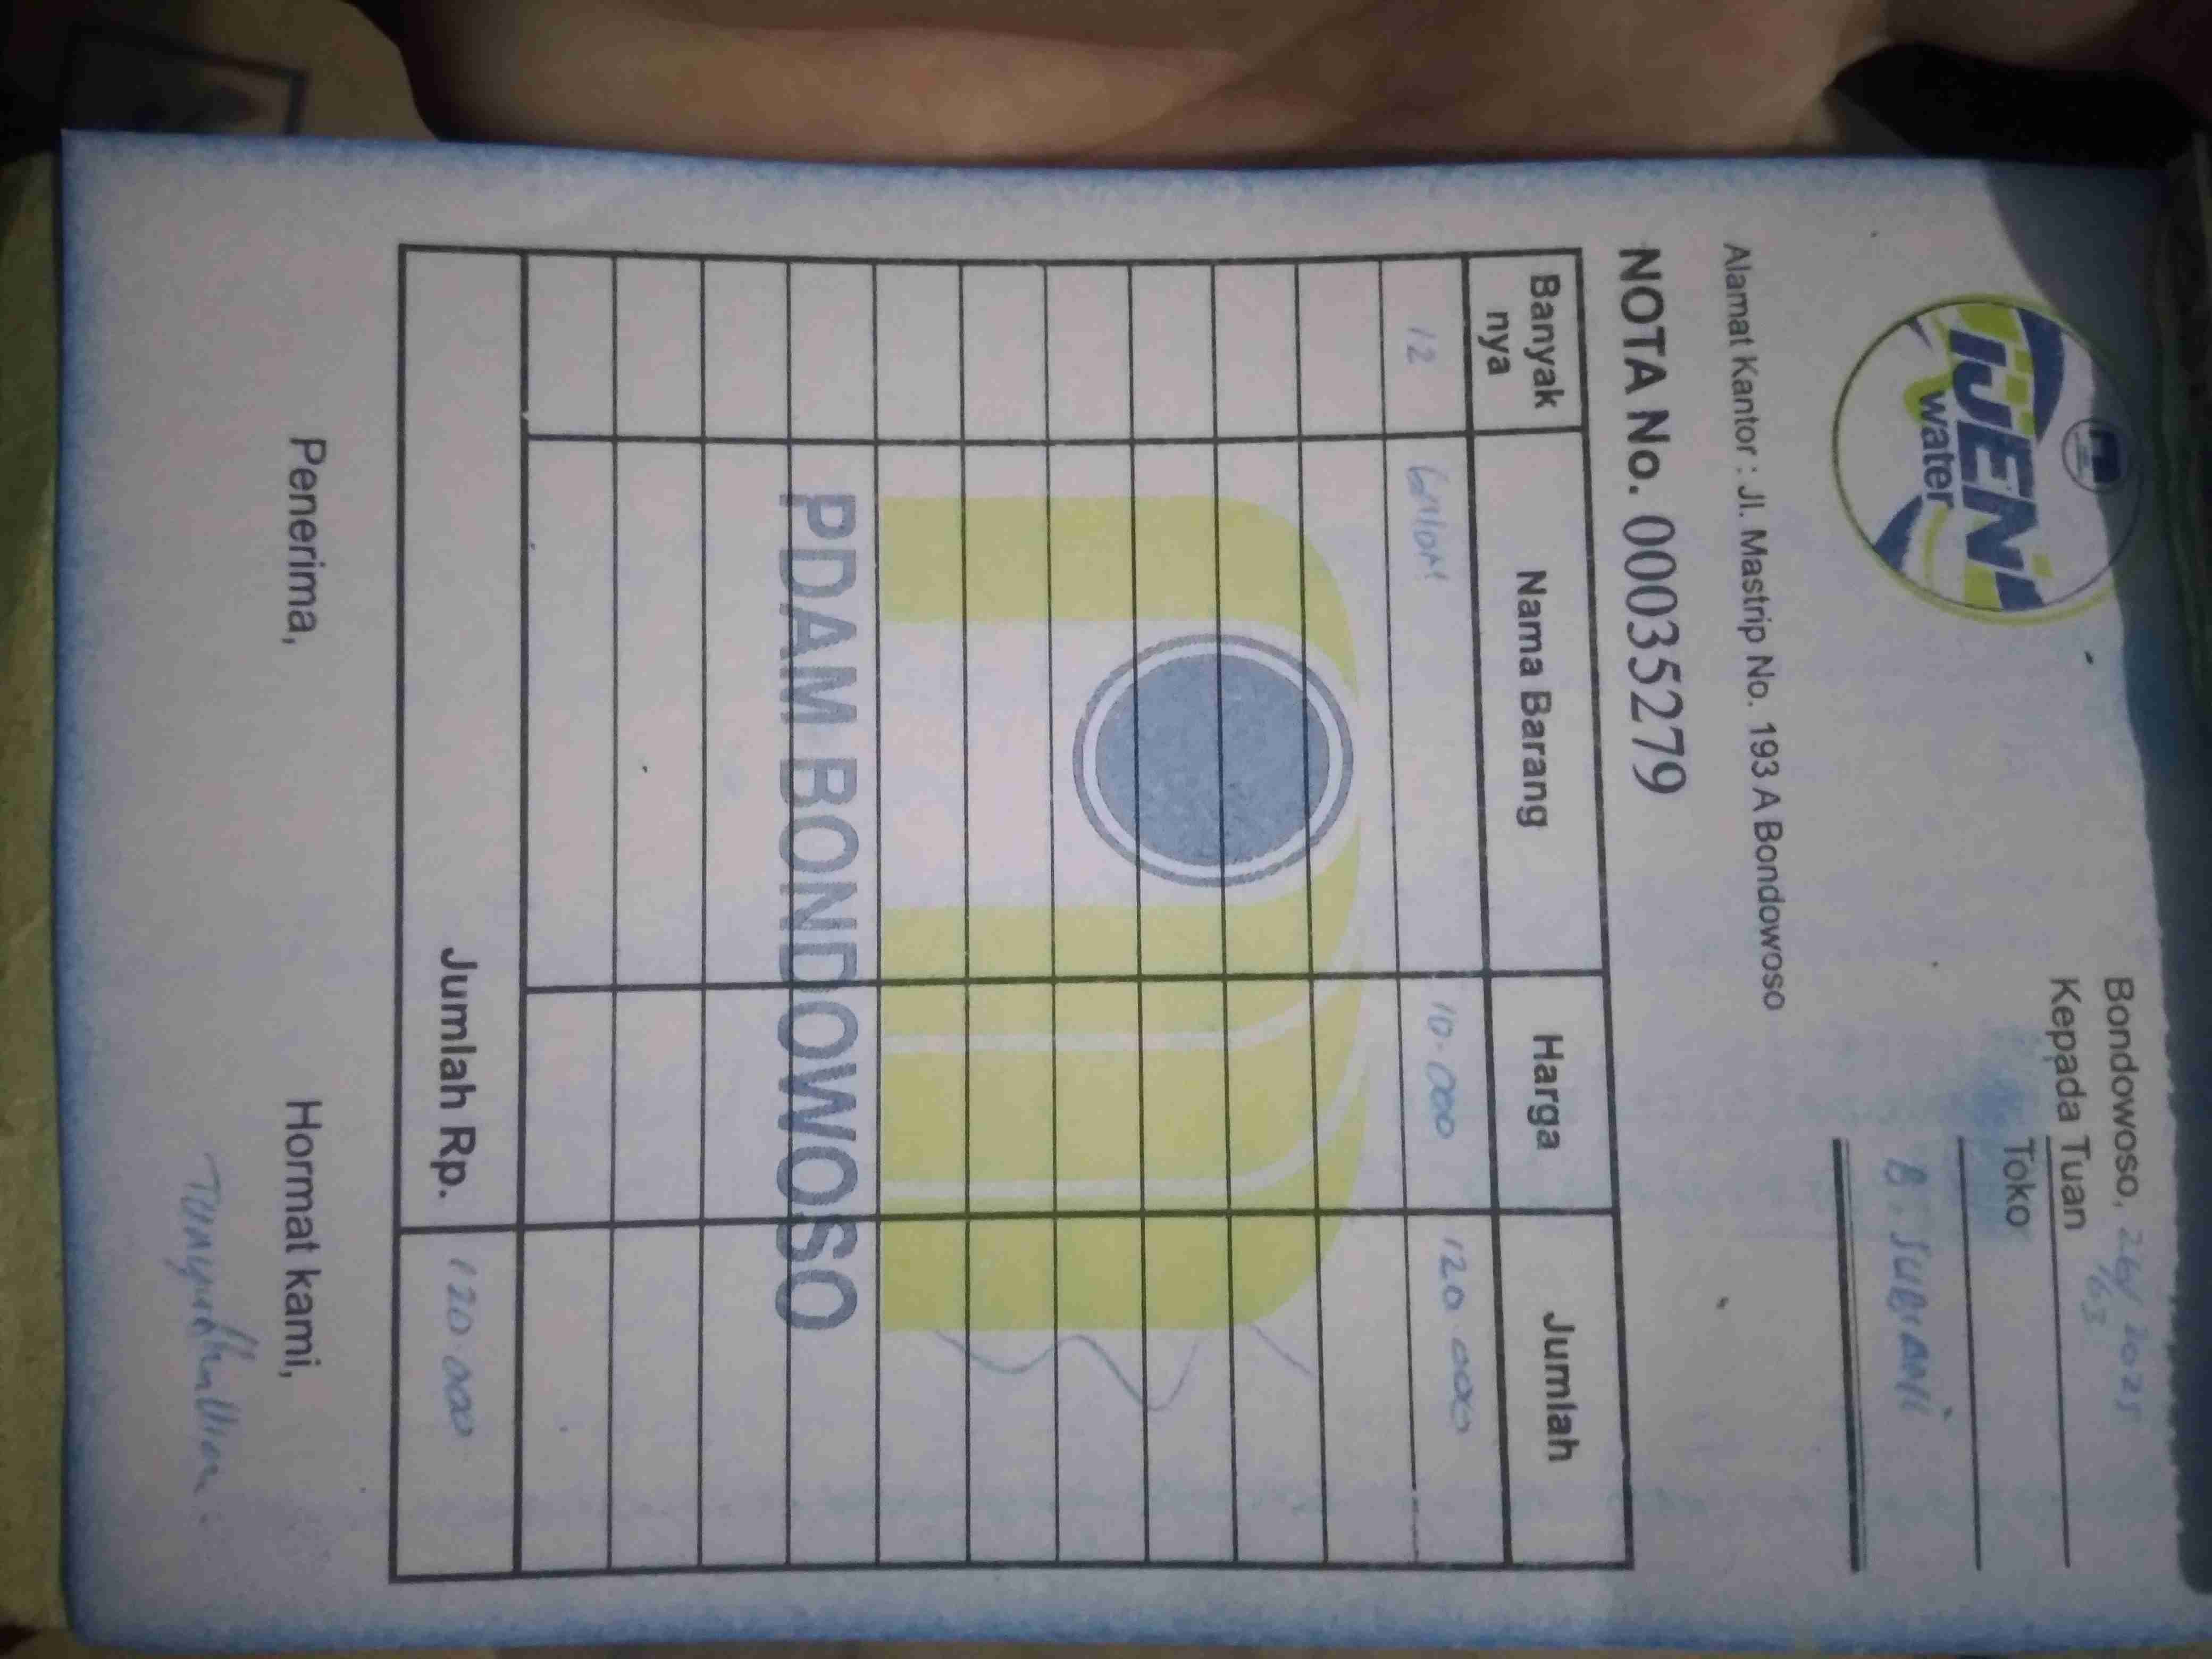 IJEN
water
Bondowoso, 26/03 2025
Kepada Tuan
Toko
B. SUBIANI
Alamat Kantor : Jl. Mastrip No. 193 A Bondowoso
NOTA No. 00035279
Banyak nya Nama Barang Harga Jumlah
12 GALON 10.000 120.000
PDAM BONDOWOSO
Jumlah Rp. 120.000
Penerima, Hormat kami,